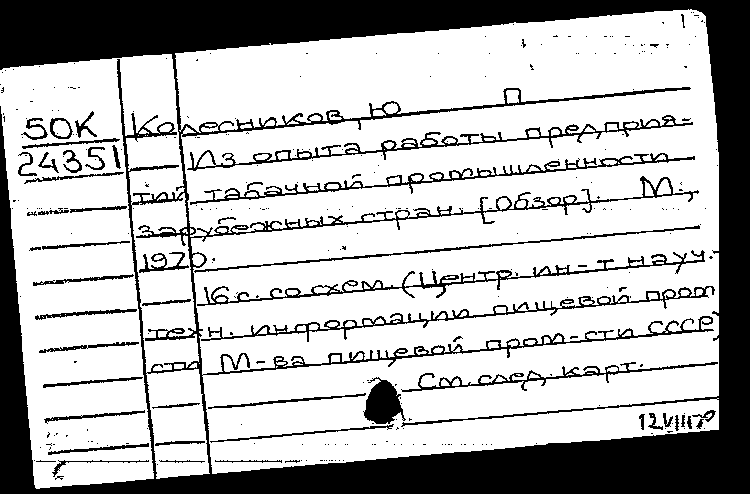 50К Колесников, Ю П
24351 Из опыта работы предприя=
тий табачной промышленности
зарубежных стран. [Обзор]. М.,
1970.
16 с. со схем. (Центр. ин-т науч.-
техн. информации пищевой пром
сти М-ва пищевой пром-сти СССР)
См. след. карт.